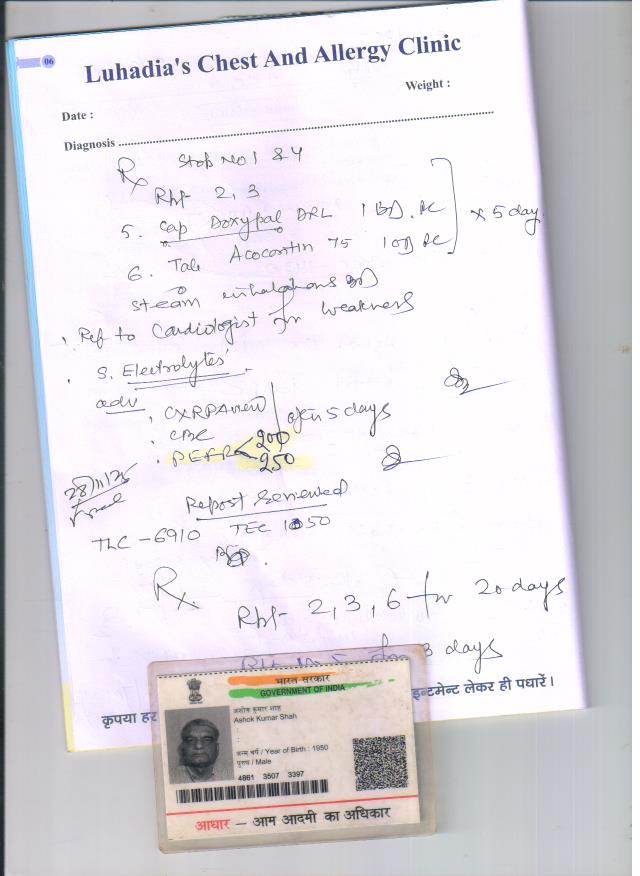 06
Luhadia's Chest And Allergy Clinic
Weight :
Date :
Diagnosis
Rx Stop No 1 & 4
Rpt 2, 3
5. Cap Doxypal DRL 1 BD. PC
6. Tab 75 1 OD PC
] x 5 day
steam inhalations BD
. Ref to Cardiologist for weakness
. S. Electrolytes
adv . CXR PA view
. CBC
after 5 days
. PEFR < 200
250
28/11/25
Report Reviewed
TLC - 6910 TEC 1050
Rx
Rpt 2, 3, 6 for 20 days
for 3 days
कृपया हर
इन्टमेन्ट लेकर ही पधारें।
भारत सरकार
GOVERNMENT OF INDIA
अशोक कुमार शाह
Ashok Kumar Shah
जन्म वर्ष / Year of Birth : 1950
पुरुष / Male
4861 3507 3397
आधार – आम आदमी का अधिकार